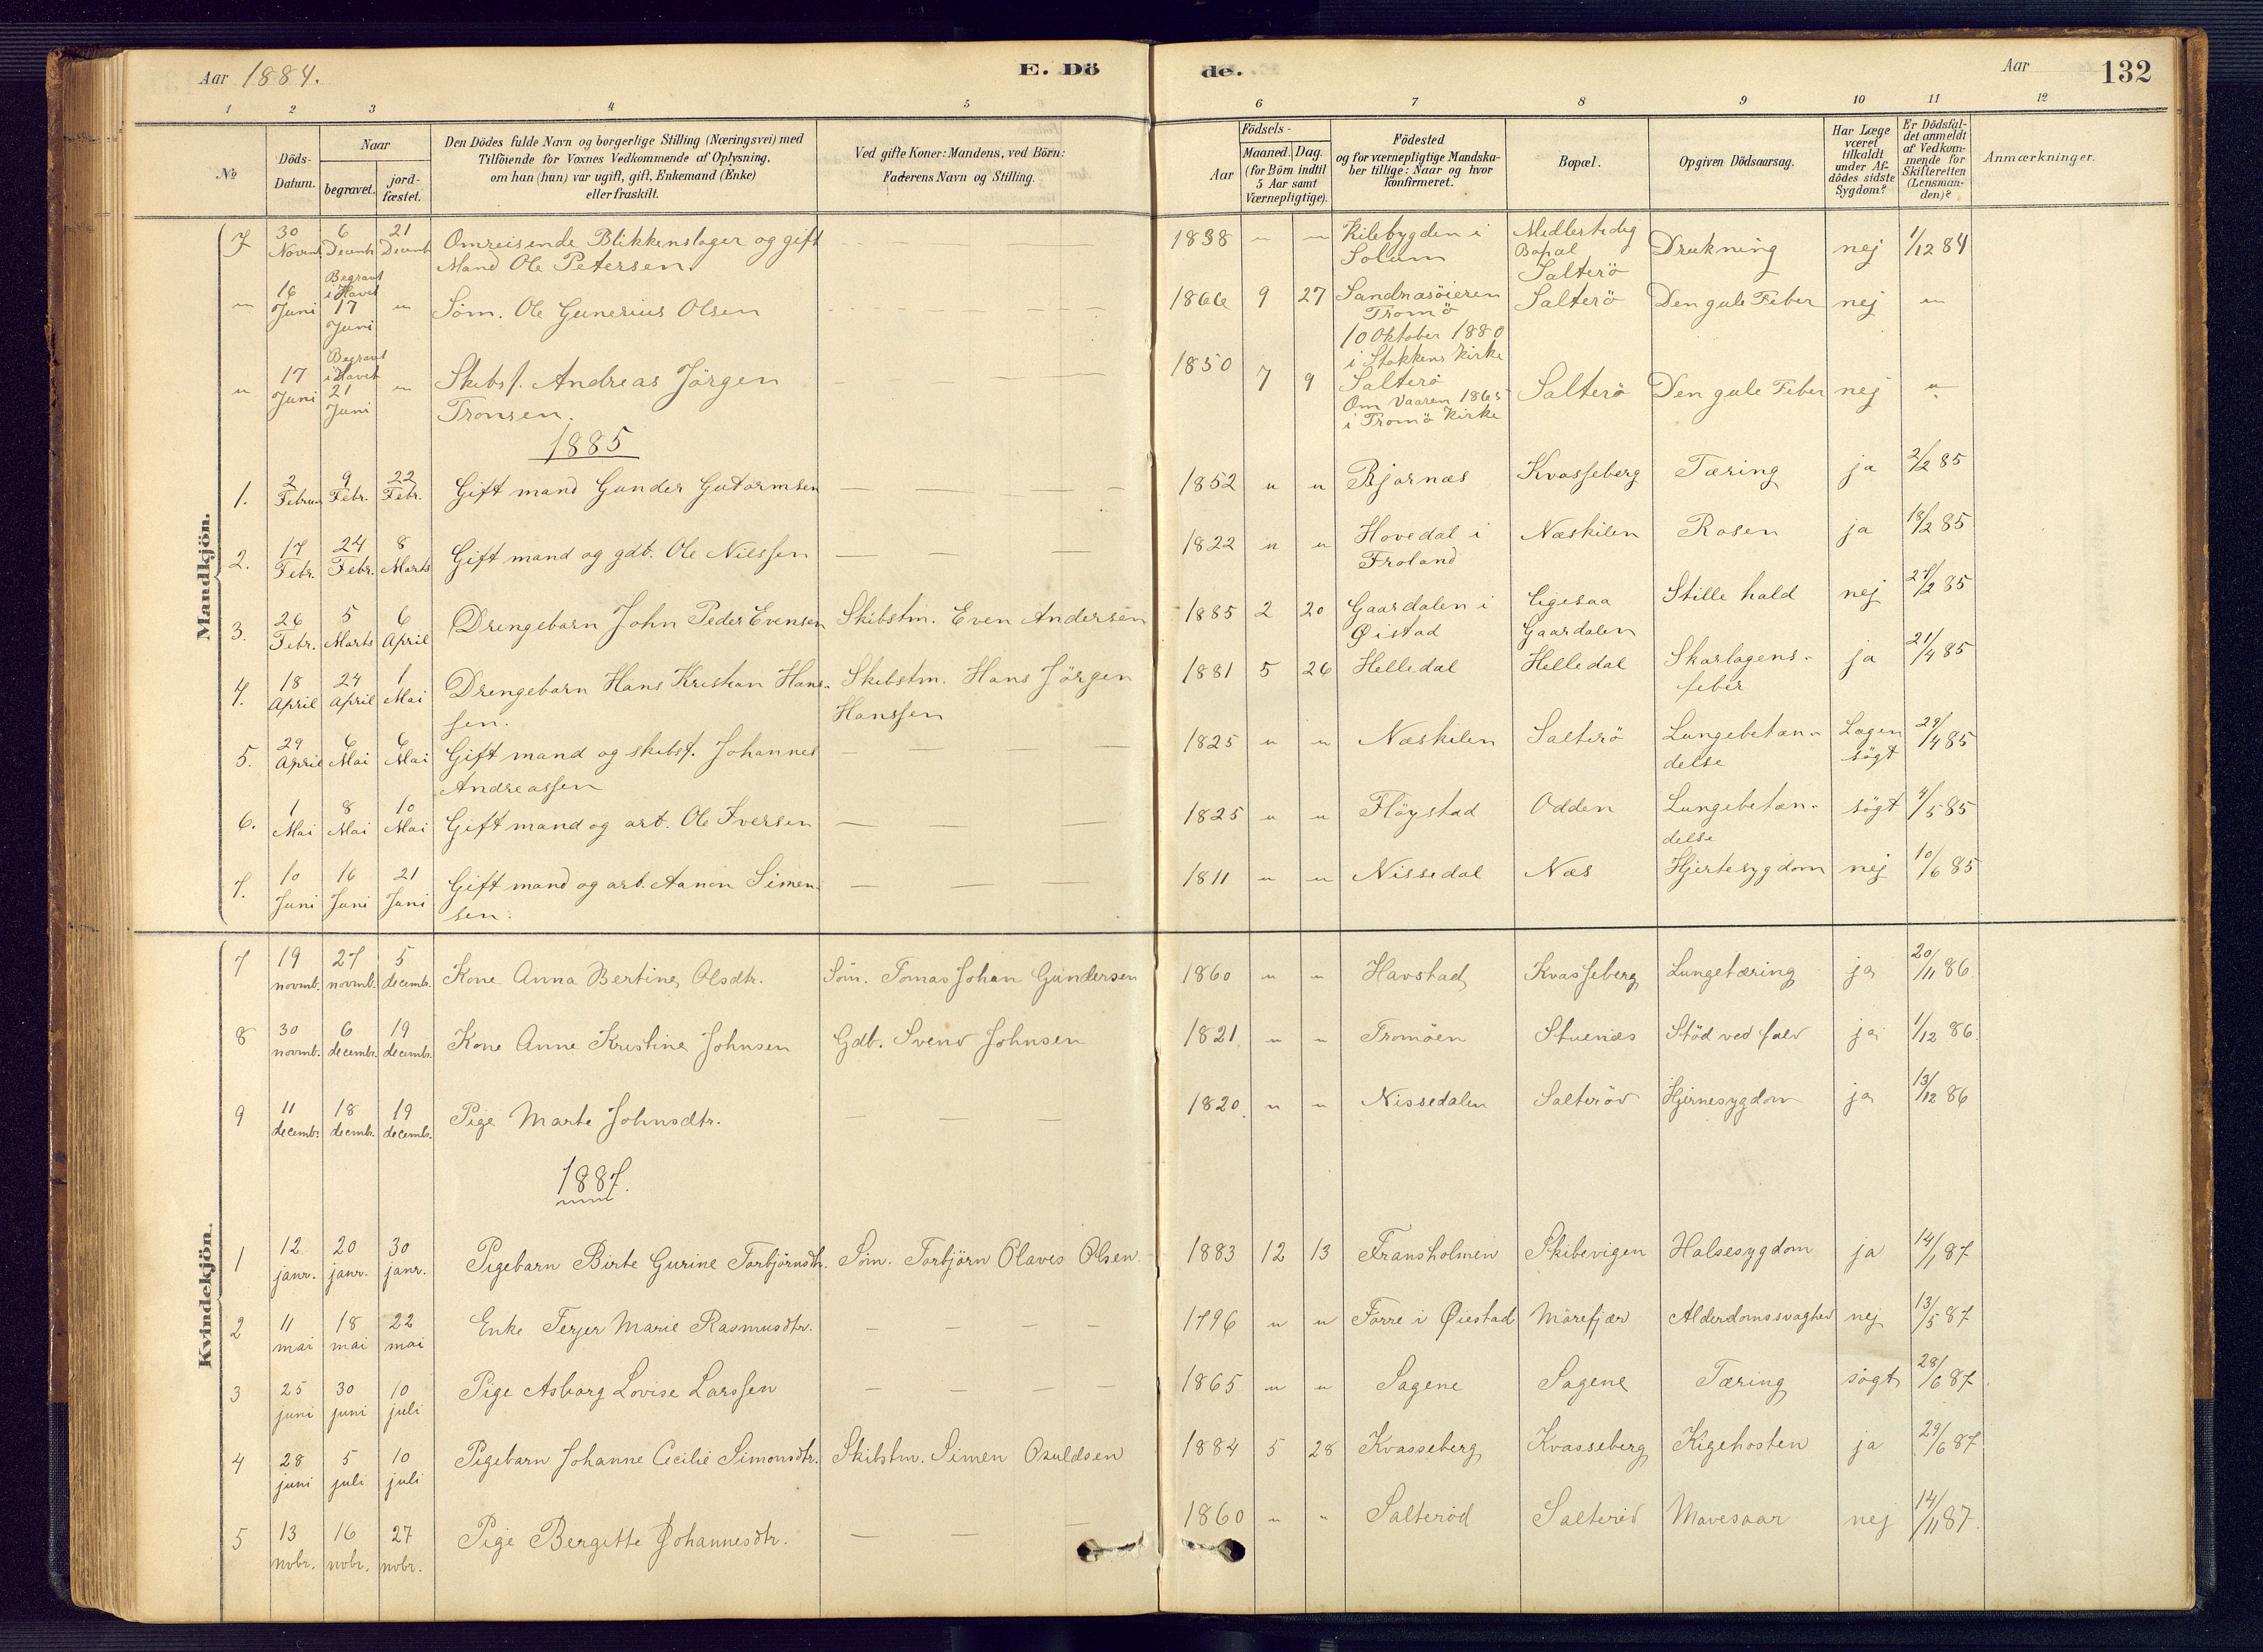 Aar 1884.
E. Döde.
Aar
132
1 2 3 4 5 6 7 8 9 10 11 12
№
Döds-Datum.
Naar
begravet.
jord-fæstet.
Den Dödes fulde Navn og borgerlige Stilling (Næringsvei) med
Tilföiende for Voxnes Vedkommende af Oplysning,
om han (hun) var ugift, gift, Enkemand (Enke)
eller fraskilt.
Ved gifte Koner: Mandens, ved Börn:
Faderens Navn og Stilling.
Födsels-
Aar
Maaned. Dag.
(for Börn indtil
5 Aar samt
Værnepligtige).
Födested
og for værnepligtige Mandska-
ber tillige: Naar og hvor
konfirmeret.
Bopæl.
Opgiven Dödsaarsag.
Har Læge
været
tilkaldt
under Af-
dödes sidste
Sygdom?
Er Dödsfal-
det anmeldt
af Vedkom-
mende for
Skifteretten
(Lensman-
den)?
Anmærkninger.
Mandkjön.
7 30 Novmb 6 Decmb 21 Decmb Omreisende Blikkenslager og gift 1838 " " Kilebygden i Midlertidig Drukning nej 1/12 84
Mand Ole Petersen. Solum Bopæl Salterö
" 16 Juni Begravt i Havet 17 Juni " Söm. Ole Gunerius Olsen 1866 9 27 Sandnæsöieren Salterö Den gule Feber nej "
Tromö
10 Oktober 1880
i Stokkens Kirke
" 17 Juni Begravt i Havet 21 Juni " Skibsf. Andreas Jörgen 1850 7 9 Salterö Salterö Den gule Feber nej "
Tronsen. Om Vaaren 1865
i Tromö Kirke
1885
1. 2 Februar 9 Febr. 22 Febr. Gift mand Gunder Gutormsen 1852 " " Bjørnæs Kvasseberg Tæring ja 2/2 85
2. 17 Febr. 24 Febr. 8 Marts Gift mand og gdb. Ole Nilssen 1822 " " Hovedal i Næskilen Rosen ja 18/2 85
Froland
3. 26 Febr. 5 Marts 6 April Drengebarn John Peder Evensen Skibstm. Even Andersen 1885 2 20 Gaardalen i Ligesaa Stille hald nej 27/2 85
Øistad Gaardalen
4. 18 April 24 April 1 Mai Drengebarn Hans Kristian Hans- Skibstm. Hans Jörgen 1881 5 26 Helledal Helledal Skarlagens- ja 21/4 85
sen. Hanssen feber
5. 29 April 6 Mai 6 Mai Gift mand og skibsf. Johannes 1825 " " Næskilen Salterö Lungebetæn- Lægen 29/4 85
Andreassen delse sögt
6. 1 Mai 8 Mai 10 Mai Gift mand og arb. Ole Iversen 1825 " " Flöystad Odden Lungebetæn- sögt 4/5 85
delse
7. 10 Juni 16 Juni 21 Juni Gift mand og arb. Aanon Simen- 1811 " " Nissedal Næs Hjertesygdom nej 10/6 85
sen.
Kvindekjön.
7 19 novmb. 27 novmb. 5 decemb. Kone Anna Bertine Olsdtr. Söm. Tomas Johan Gundersen 1860 " " Havstad Kvasseberg Lungetæring ja 20/11 86.
8 30 novmb. 6 decembr. 19 decembr. Kone Anne Kristine Johnsen Gdb. Svend Johnsen 1821. " " Tromöen Stuenæs Stöd ved fald ja 1/12 86.
9 11 decemb. 18 decemb. 19 decemb. Pige Marte Johnsdtr. 1820. " " Nissedalen Salteröd Hjernesygdom ja 13/12 86
1887.
1 12 janr. 20 janr. 30 janr. Pigebarn Birte Gurine Torbjörnsdtr. Söm. Torbjörn Olaves Olsen 1883 12 13 Fransholmen Skibevigen Halsesygdom ja 14/1 87
2 11 mai 18 mai 22 mai Enke Terjer Marie Rasmusdtr. 1796 " " Torre i Øiestad Mörefjær Alderdomssvaghed nej 13/5 87
3 25 juni 30 juni 10 juli Pige Asborg Lovise Larssen 1865 " " Sagene Sagene Tæring sögt 28/6 87
4 28 juni 5 juli 10 juli Pigebarn Johanne Cecilie Simonsdtr. Skibstm. Simen Osuldsen 1884 5 28 Kvasseberg Kvasseberg Kigehosten ja 29/6 87
5 13 nobr. 16 nobr. 27 nobr. Pige Bergitte Johannesdtr. 1860 " " Salteröd Salteröd Mavesaar nej 14/11 87.